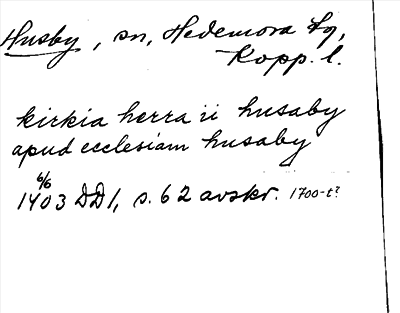 Husby, sn, Hedemora tg,
Kopp. l.
kirkia herra ii husaby
apud ecclesiam husaby
6/6
1403 DD1, s. 62 avskr. 1700-t?